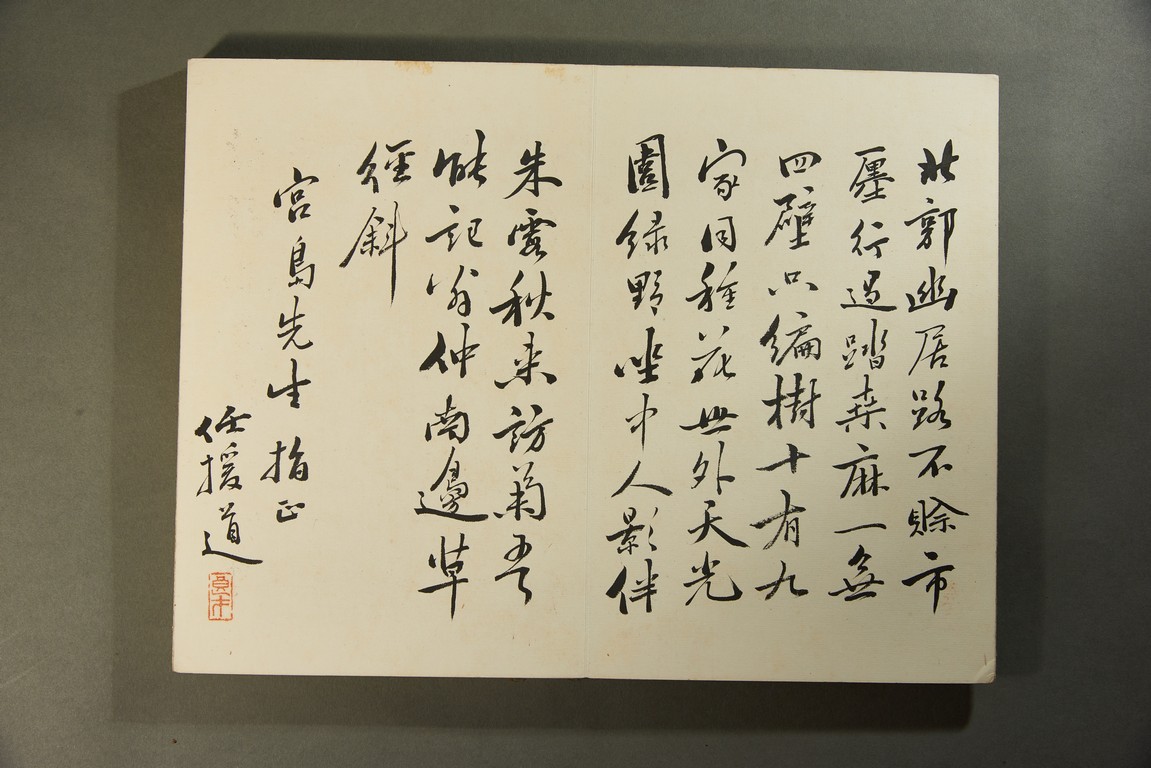 北郭幽居路不賒市
廛行過踏桑麻一無
四壁只編樹十有九
家同種花世外天光
園綠野坐中人影伴
朱霞秋来訪菊吾
能記翁仲南邊草
徑斜
宮島先生指正
任援道